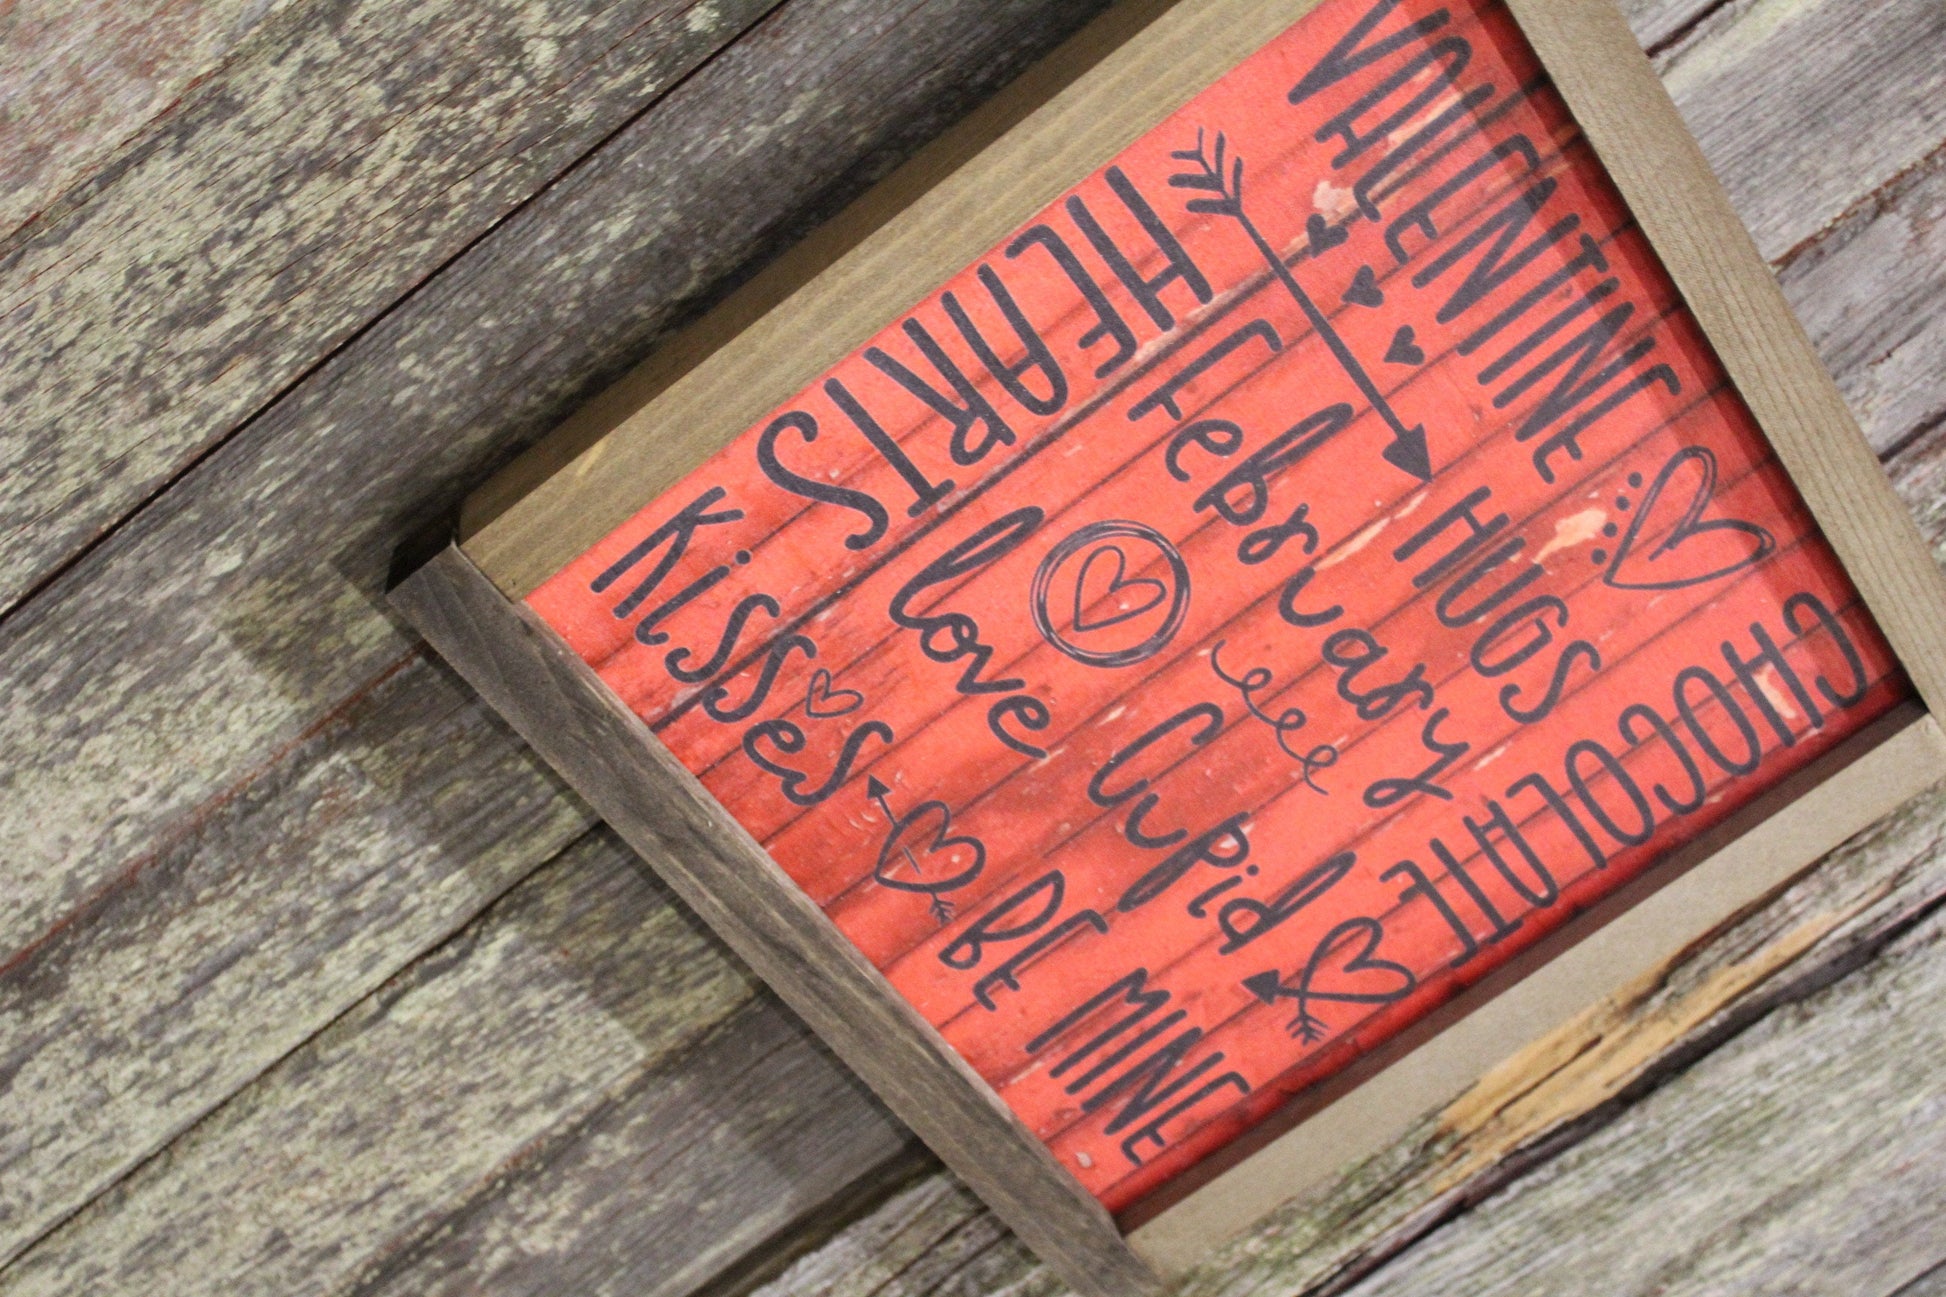 VALENTINE
HUGS
CHOCOLATE
HEARTS
February
love
Cupid
Kisses
BE MINE